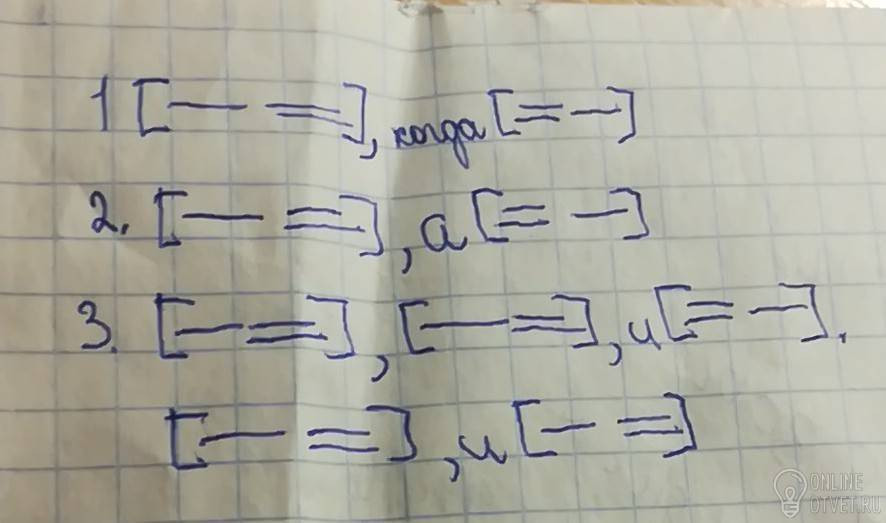 1 [— =], когда [= —]
2. [— =], а [= —]
3. [— =], [— =], и [= —].
[— =], и [— =]
ONLINE
OTVET.RU